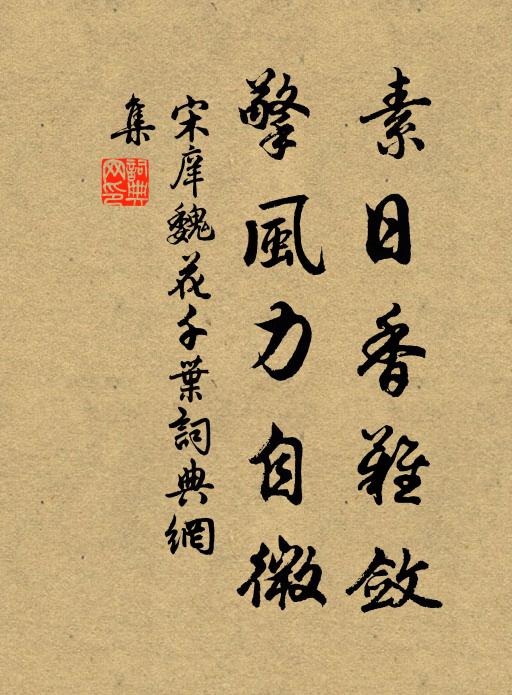 素日香難斂
擎風力自微
宋庠魏花千葉詞典網
集
詞典
网印